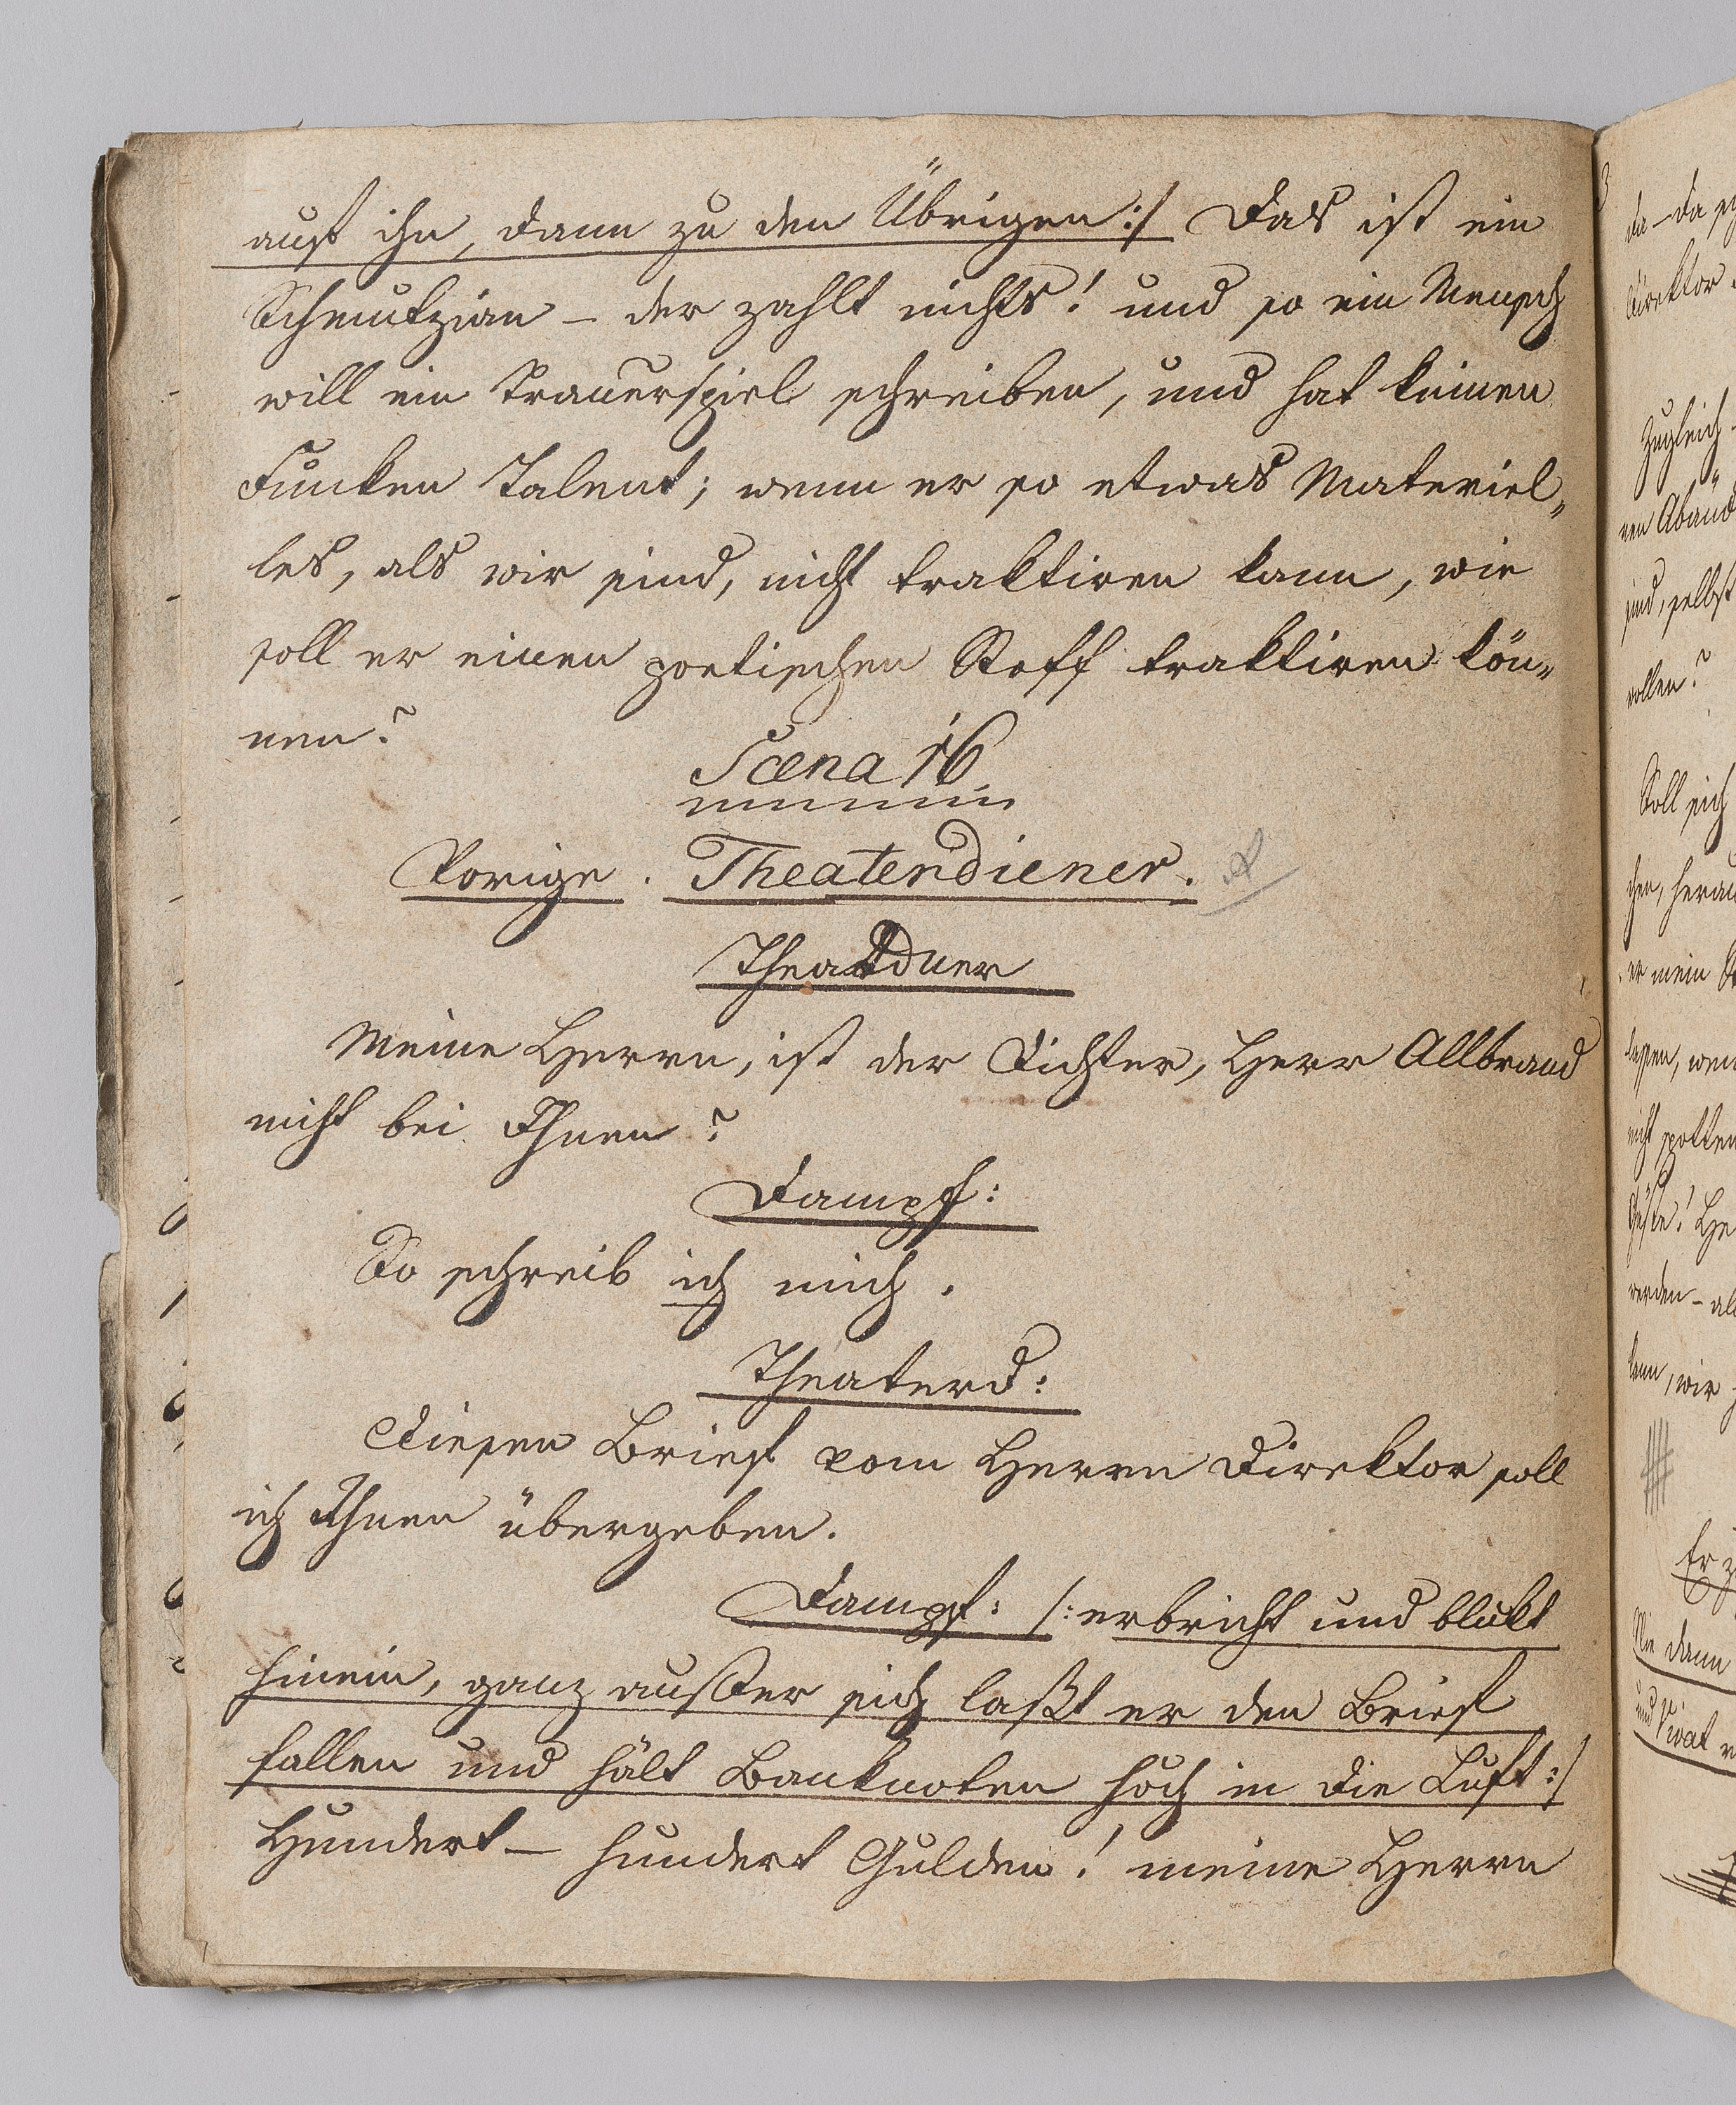 auf ihn, dann zu den Übrigen :/ Das ist ein
Schmutzian – der zahlt nichts! und so ein Mensch
will ein Trauerspiel schreiben, und hat keinen
Funken Talent; wenn er so etwas Materiel„
les, als wir sind, nicht traktiren kann, wie
soll er einen poetischen Stoff traktiren kön„
nen?
Scena 16
Vorige. Theaterdiener.
Theatdner
Meine Herrn, ist der Dichter, Herr Allbrand
nicht bei Ihnen?
Dampf:
So schreib ich mich.
Theaterd:
Diesen Brief vom Herrn Direktor soll
ich Ihnen übergeben.
Dampf: /: erbricht und blikt
hinein, ganz außer sich laßt er den Brief
fallen und hält Banknoten hoch in die Luft :/
Hundert – hundert Gulden! meine Herrn
da – da
Direktor
Zugleich
nen
sind, selbst
wollen?
Soll sich
er mein
lassen,
nicht spotten
werden –
kann, wir
Er
Alle dann
und Vivat